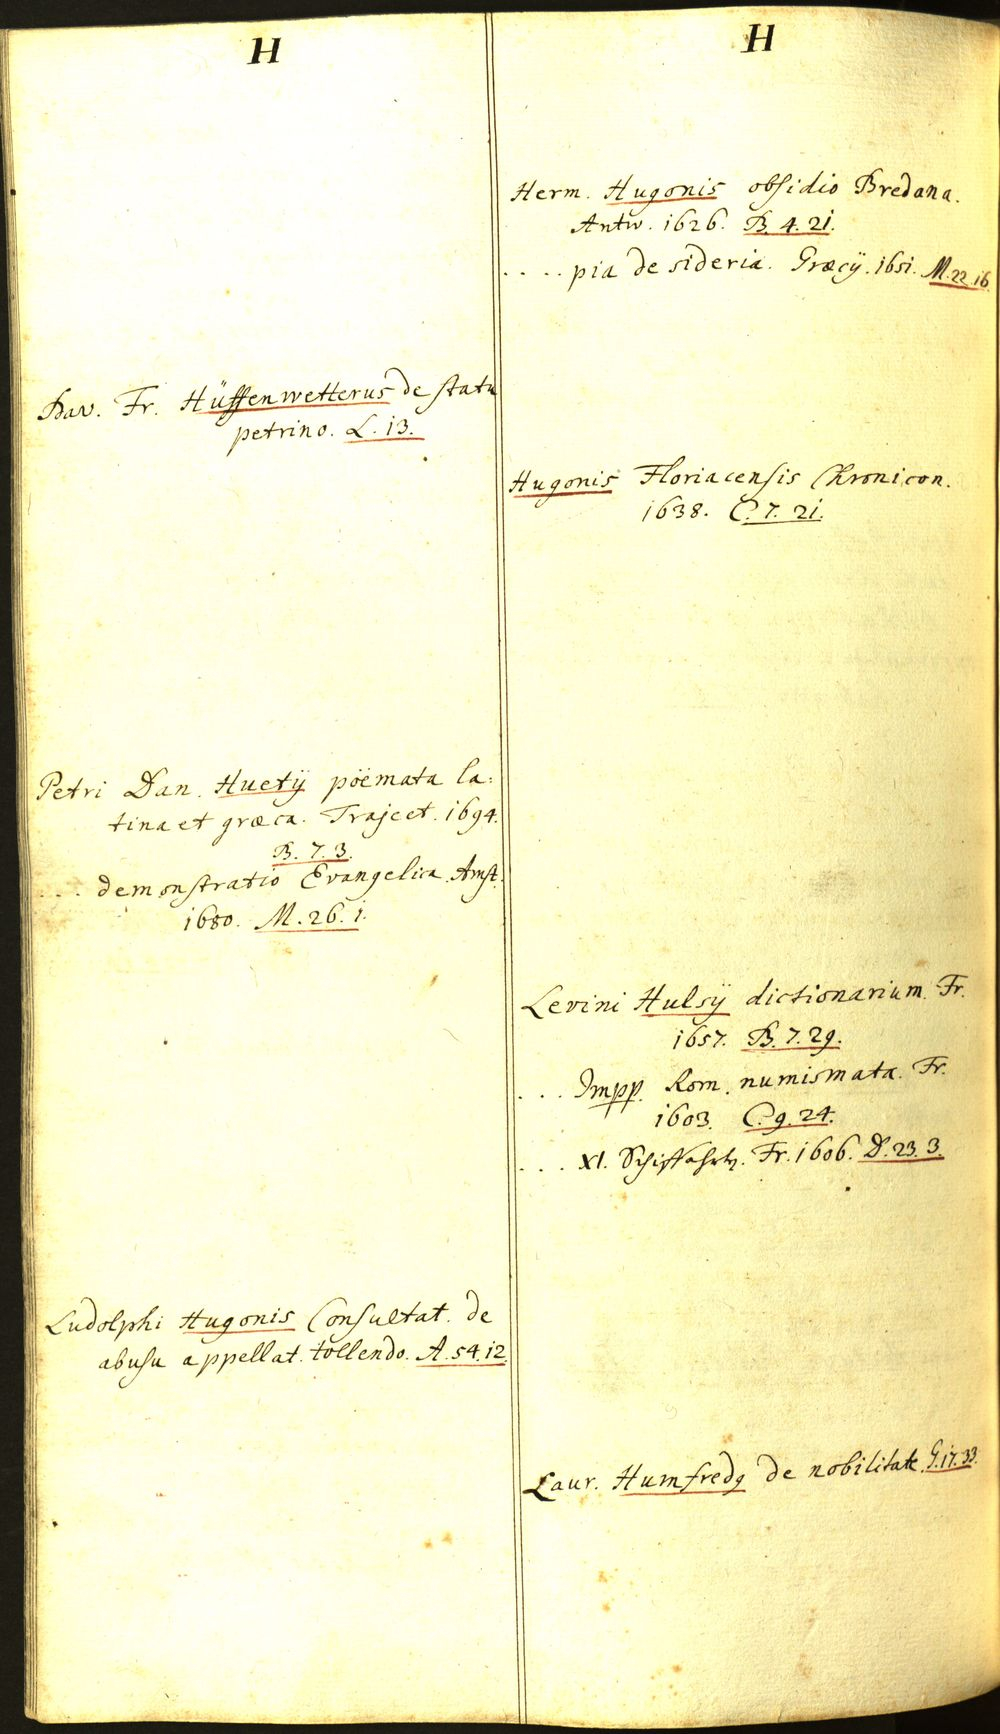 H
Dav. Fr. Hüffenwetterus de statu
petrino. L. 13.
Petri Dan. Huetÿ poëmata la:
tina et græca. Traject. 1694.
B. 7. 3.
.... demonstratio Evangelica. Amst.
1680. M. 26. 1.
Ludolphi Hugonis Consultat. de
abusu appellat. tollendo. A. 54. 12.
H
Herm. Hugonis obsidio Bredana.
Antw. 1626. B. 4. 21.
.... pia desideria. Græcÿ. 1651. M. 22. 16.
Hugonis Floriacensis Chronicon.
1638. C. 7. 21.
Levini Hulsÿ dictionarium. Fr.
1657. B. 7. 29.
... Impp. Rom. numismata. Fr.
1603. C. 9. 24.
.... XI. Schiffahrt. Fr. 1606. D. 23. 3.
Laur. Humfredq de nobilitate. G. 17. 33.